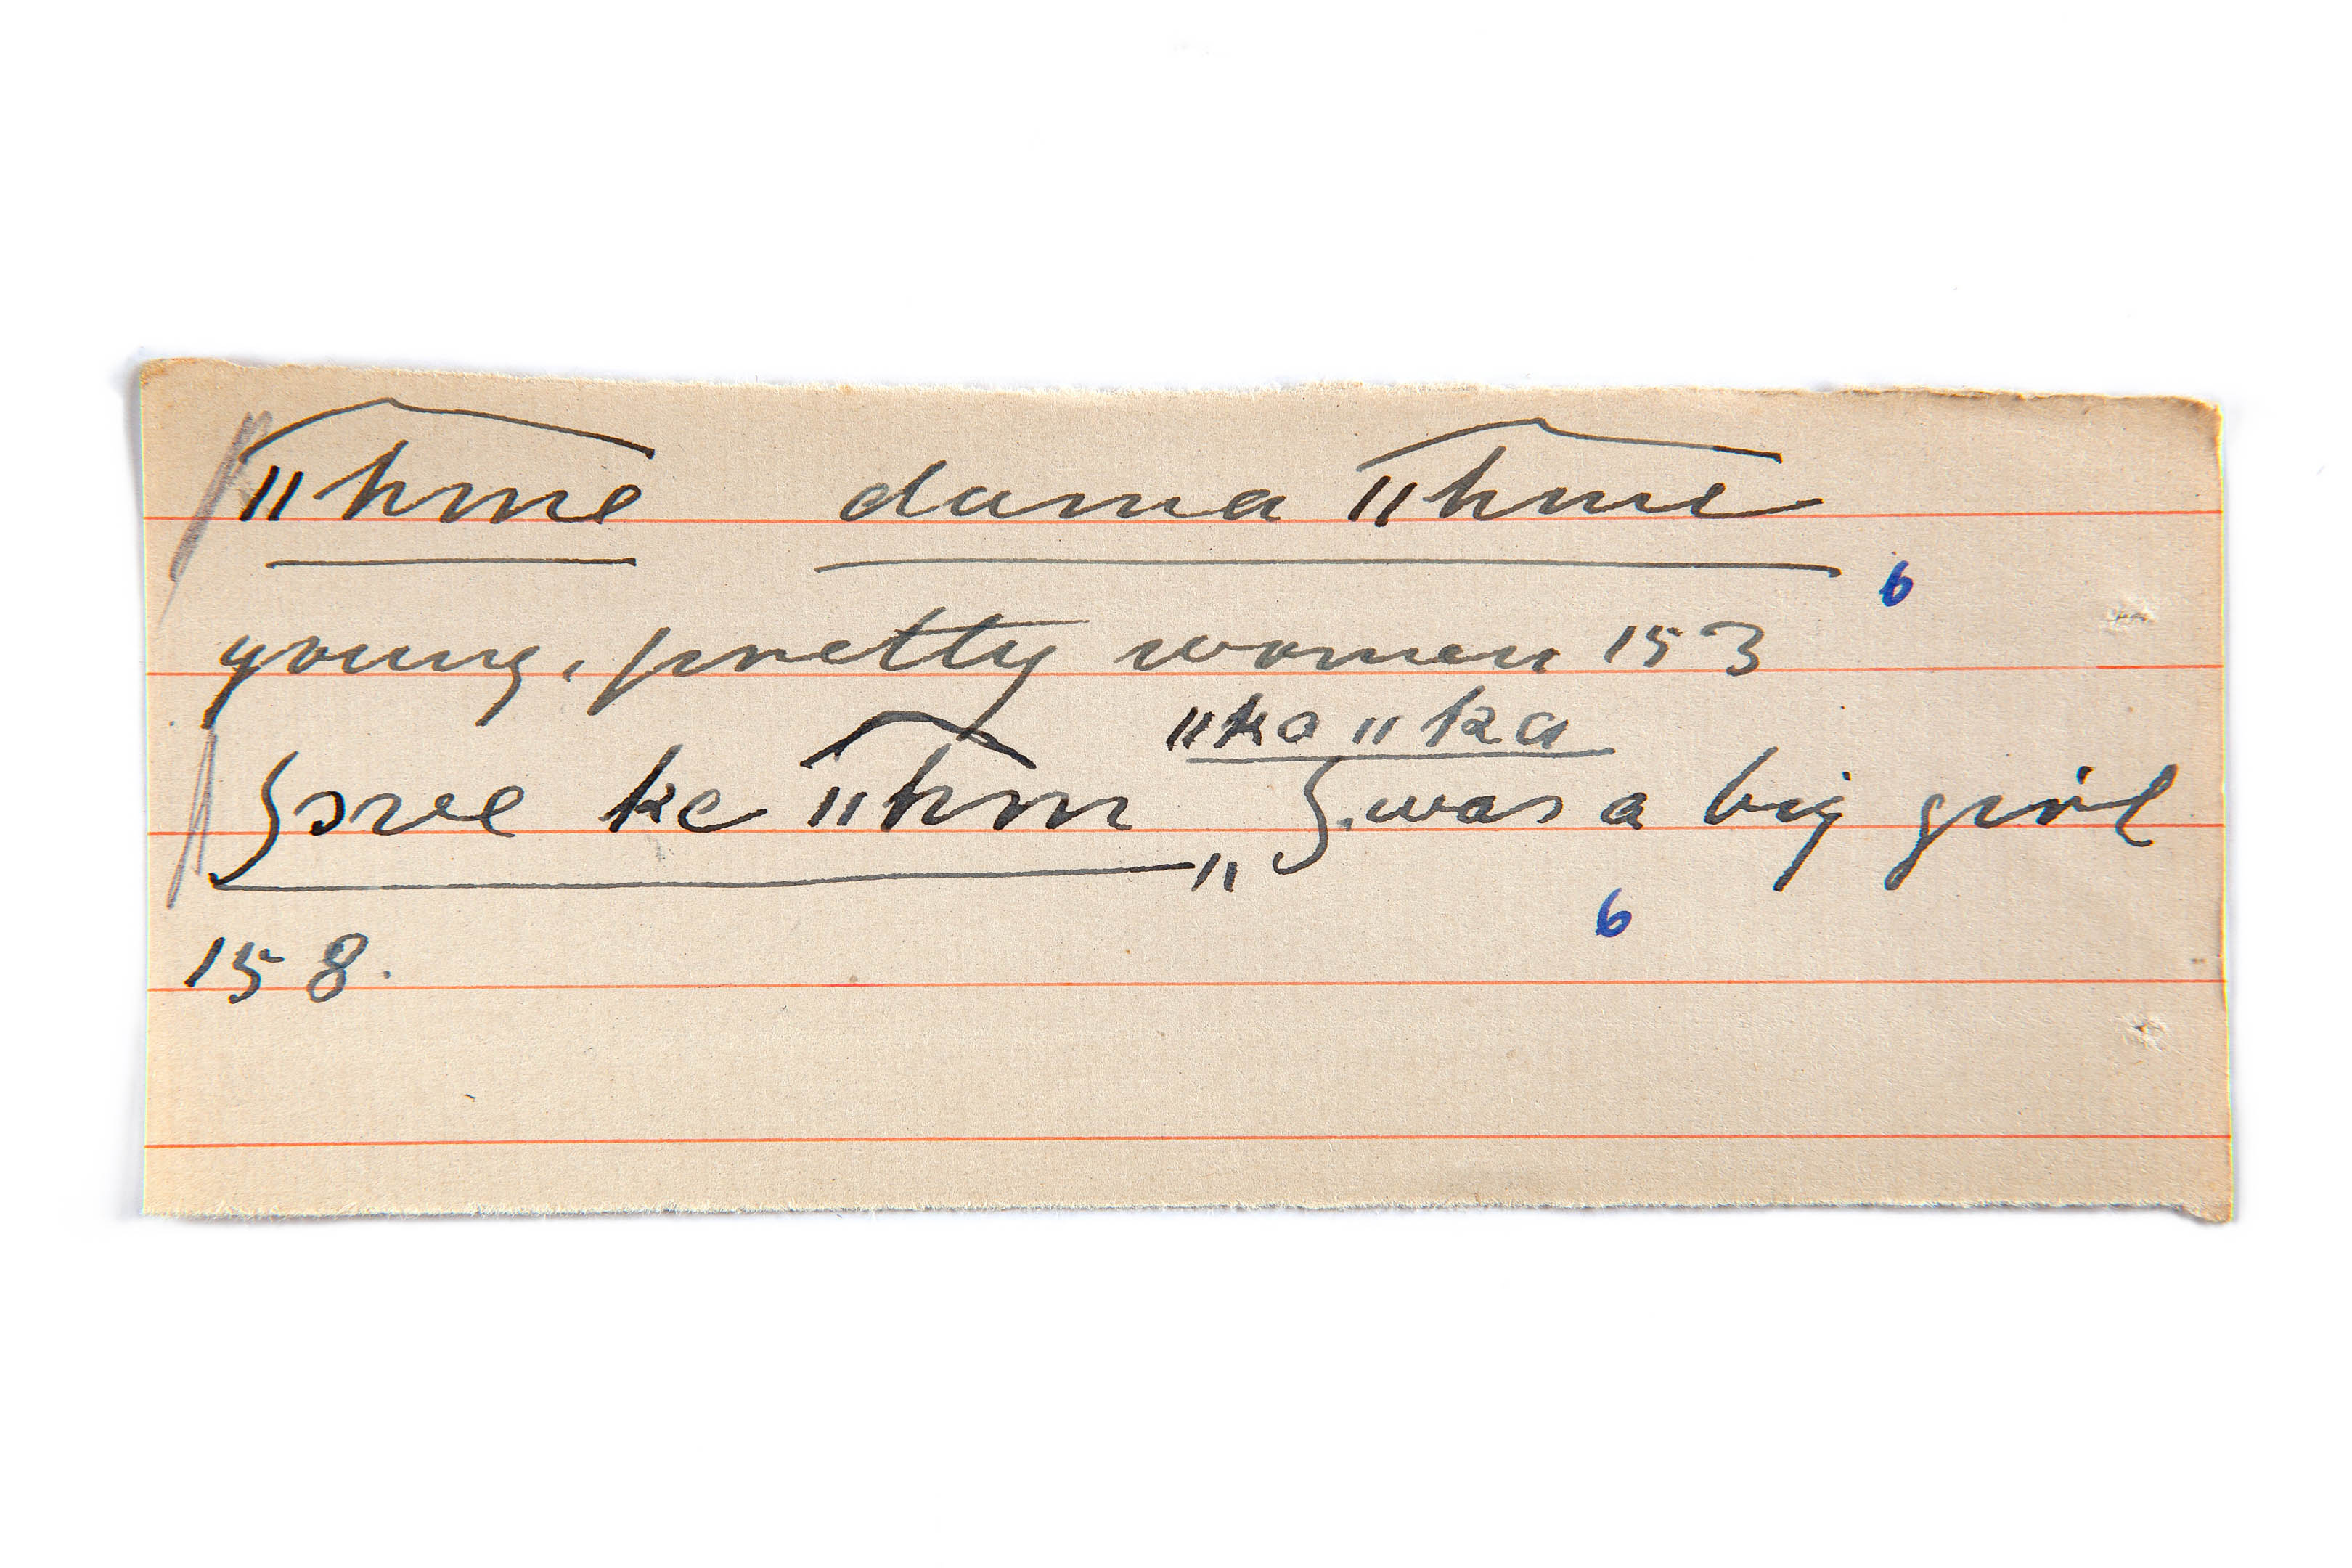 "hme dama "hme
6
young, pretty women 153
"ka "ka
ɔve ke "hm " was a big girl
6
158.